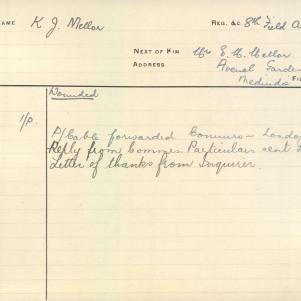 NAME K. J. Mellor REG. &c 8th Field A
NEXT OF KIN Mr E. H. Mellor
ADDRESS Avenel Garden
Medindie FI
Wounded
P/Cable forwarded Commrs - London
Reply from Commrs Particulars sent
Letter of thanks from Inquirer.